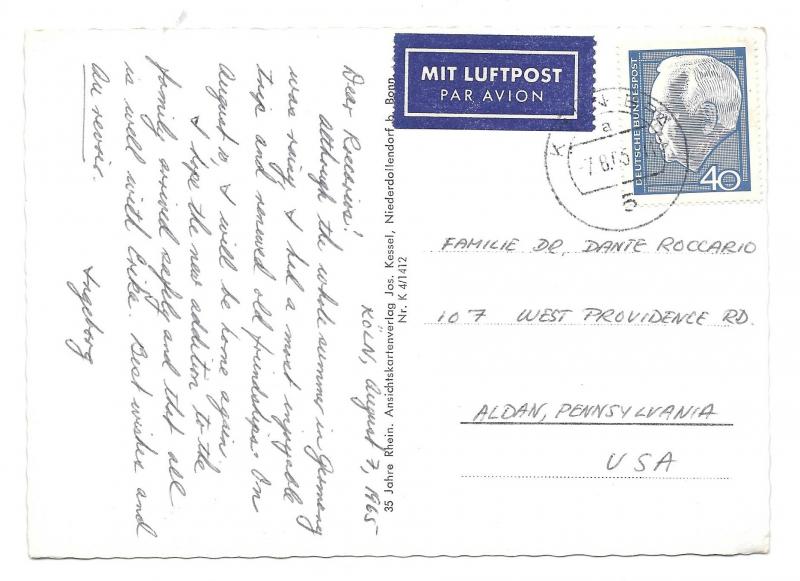 KÖLN, August 7, 1965
Dear Roccarios!
although the whole summer in Germany
was rainy I had a most enjoyable
trip and renewed old friendships. On
August 10 I will be home again.
I hope the new addition to the
family arrived safely and that all
is well with Erika. Best wishes and
au revoir.
Ingeborg
35 Jahre Rhein. Ansichtskartenverlag Jos. Kessel, Niederdollendorf b. Bonn
Nr. K 4/1412
MIT LUFTPOST
PAR AVION
DEUTSCHE BUNDESPOST
40
a
-7.8.65
FAMILIE DR. DANTE ROCCARIO
107 WEST PROVIDENCE RD.
ALDAN, PENNSYLVANIA
USA